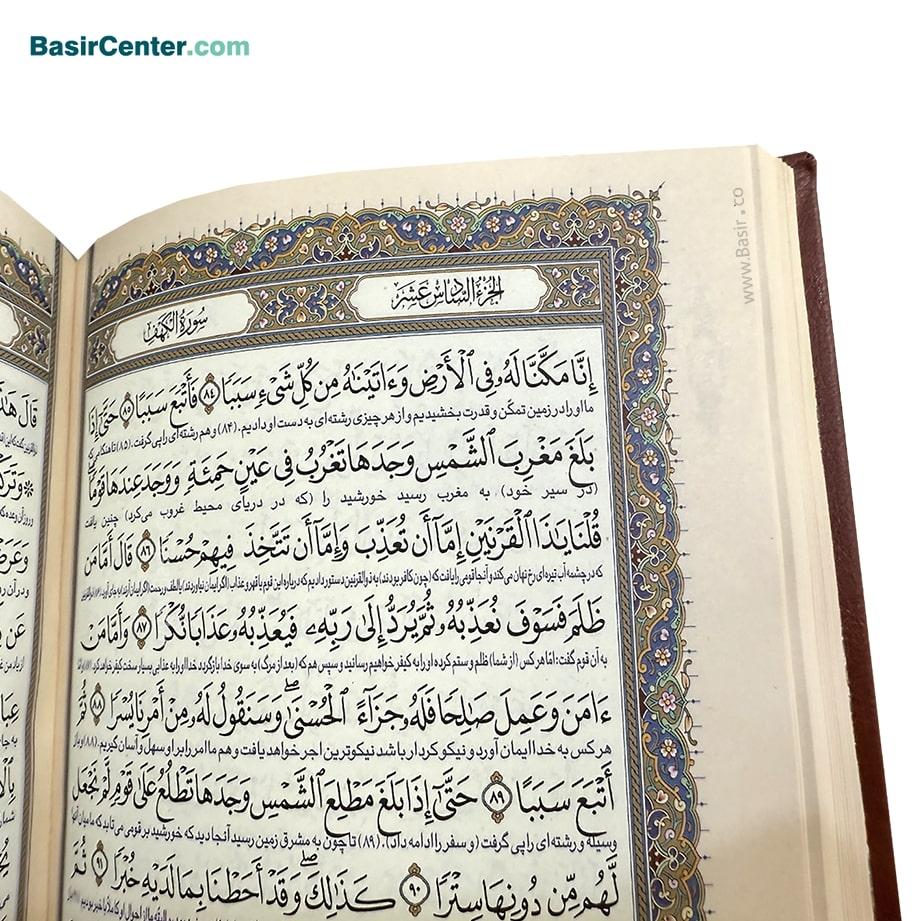 BasirCenter.com
www.Basir.co
الجزء السادس عشر
سورة الكهف
إِنَّا مَكَّنَّا لَهُۥ فِى ٱلْأَرْضِ وَءَاتَيْنَٰهُ مِن كُلِّ شَىْءٍ سَبَبًا ﴿٨٤﴾ فَأَتْبَعَ سَبَبًا ﴿٨٥﴾ حَتَّىٰٓ إِذَا
ما او را در زمین تمکّن و قدرت بخشیدیم و از هر چیزی رشته‌ای به دست او دادیم. (۸۴) و هم رشته‌ای را پی گرفت. (۸۵) تا هنگامی که
بَلَغَ مَغْرِبَ ٱلشَّمْسِ وَجَدَهَا تَغْرُبُ فِى عَيْنٍ حَمِئَةٍ وَوَجَدَ عِندَهَا قَوْمًا
(در سیر خود) به مغرب رسید خورشید را (که در دریای محیط غروب می‌کرد) چنین یافت
قُلْنَا يَٰذَا ٱلْقَرْنَيْنِ إِمَّآ أَن تُعَذِّبَ وَإِمَّآ أَن تَتَّخِذَ فِيهِمْ حُسْنًا ﴿٨٦﴾ قَالَ أَمَّا مَن
که در چشمه آب تیره‌ای رخ نهان می‌کند و آنجا قومی را یافت که (چون کافر بودند) به ذوالقرنین دستور دادیم که درباره این قوم یا قهر و عذاب (اگر ایمان نیاوردند) یا لطف و رحمت (اگر ایمان آرند) به جای آور.
ظَلَمَ فَسَوْفَ نُعَذِّبُهُۥ ثُمَّ يُرَدُّ إِلَىٰ رَبِّهِۦ فَيُعَذِّبُهُۥ عَذَابًا نُّكْرًا ﴿٨٧﴾ وَأَمَّا مَنْ
به آن قوم گفت: امّا هر کس (از شما) ظلم و ستم کرده او را به کیفر خواهیم رسانید و سپس هم که (بعد از مرگ) به سوی خدا بازگردد خدا او را به عذابی بسیار سخت کیفر خواهد کرد.
ءَامَنَ وَعَمِلَ صَٰلِحًا فَلَهُۥ جَزَآءً ٱلْحُسْنَىٰ ۖ وَسَنَقُولُ لَهُۥ مِنْ أَمْرِنَا يُسْرًا ﴿٨٨﴾ ثُمَّ
هر کس به خدا ایمان آورد و نیکو کردار باشد نیکوترین اجر خواهد یافت و هم ما امر را بر او سهل و آسان گیریم. (۸۸) و باز
أَتْبَعَ سَبَبًا ﴿٨٩﴾ حَتَّىٰٓ إِذَا بَلَغَ مَطْلِعَ ٱلشَّمْسِ وَجَدَهَا تَطْلُعُ عَلَىٰ قَوْمٍ لَّمْ نَجْعَل
وسیله و رشته‌ای را پی گرفت (و سفر را ادامه داد). (۸۹) تا چون به مشرق زمین رسید آنجا دید که خورشید بر قومی می‌تابد که ما میان آنها
لَّهُم مِّن دُونِهَا سِتْرًا ﴿٩٠﴾ كَذَٰلِكَ ۖ وَقَدْ أَحَطْنَا بِمَا لَدَيْهِ خُبْرًا ﴿٩١﴾ ثُمَّ